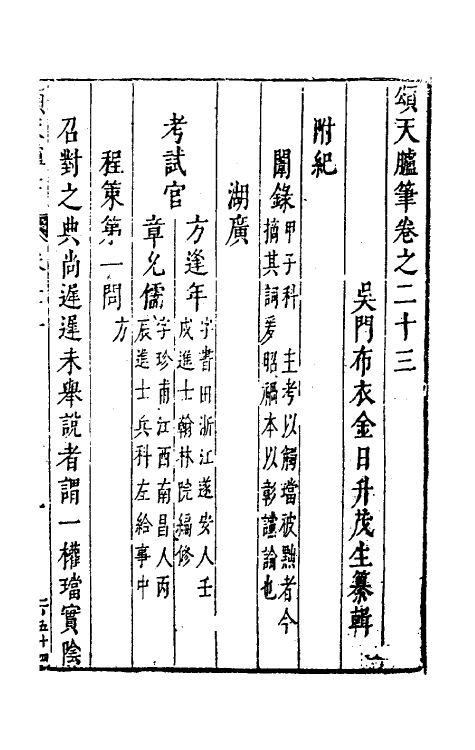 頌天臚筆卷之二十三
吳門布衣金日升茂生纂輯
附紀
闈錄甲子科 主考以觸璫被黜者今
摘其詞爰昭禍本以彰讜論也
湖廣
考試官
方逢年字書田浙江遂安人壬
戌進士翰林院編修
章允儒字珍甫江西南昌人丙
辰進士兵科左給事中
程策第一問方
召對之典尚遲遲未舉說者謂一權璫實陰